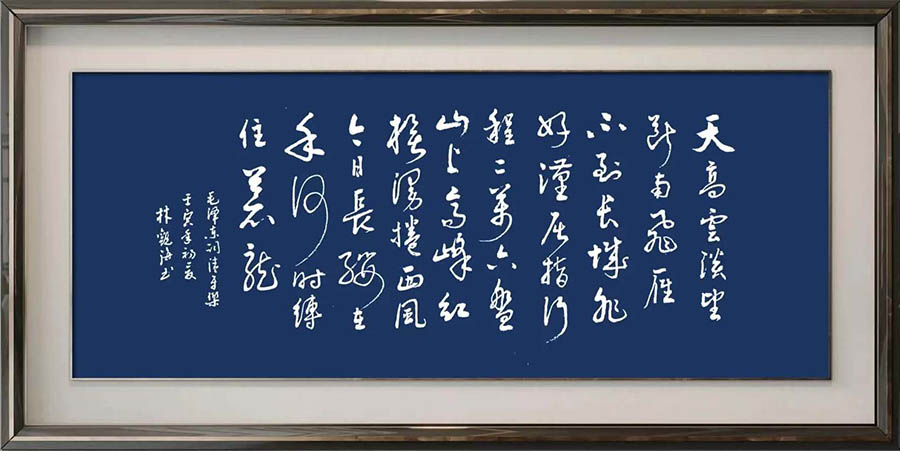 天高雲淡望
斷南飛雁
不到长城非
好漢屈指行
程二萬六盤
山上高峰红
旗漫捲西風
今日長纓在
手何时縛
住蒼龍
毛澤東詞清平樂
壬寅年初夏
林觀海书